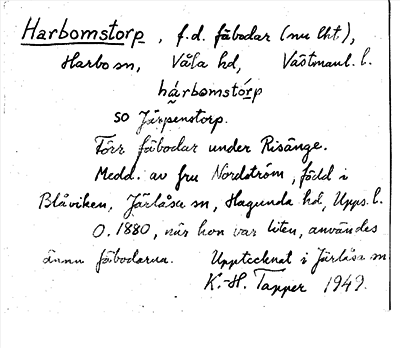 Harbomstorp, f.d. fäbodar (nu lht.),
Harbo sn, Våla hd, Västmanl. l.
hárbomstórp
SO Järpenstorp.
Förr fäbodar under Risänge.
Medd. av fru Nordström, född i
Blåviken, Järlåsa sn, Hagunda hd, Upps. l.
O. 1880, när hon var liten, användes
ännu fäbodarna. Upptecknat i Järlåsa sn
K.-H. Tapper 1949.